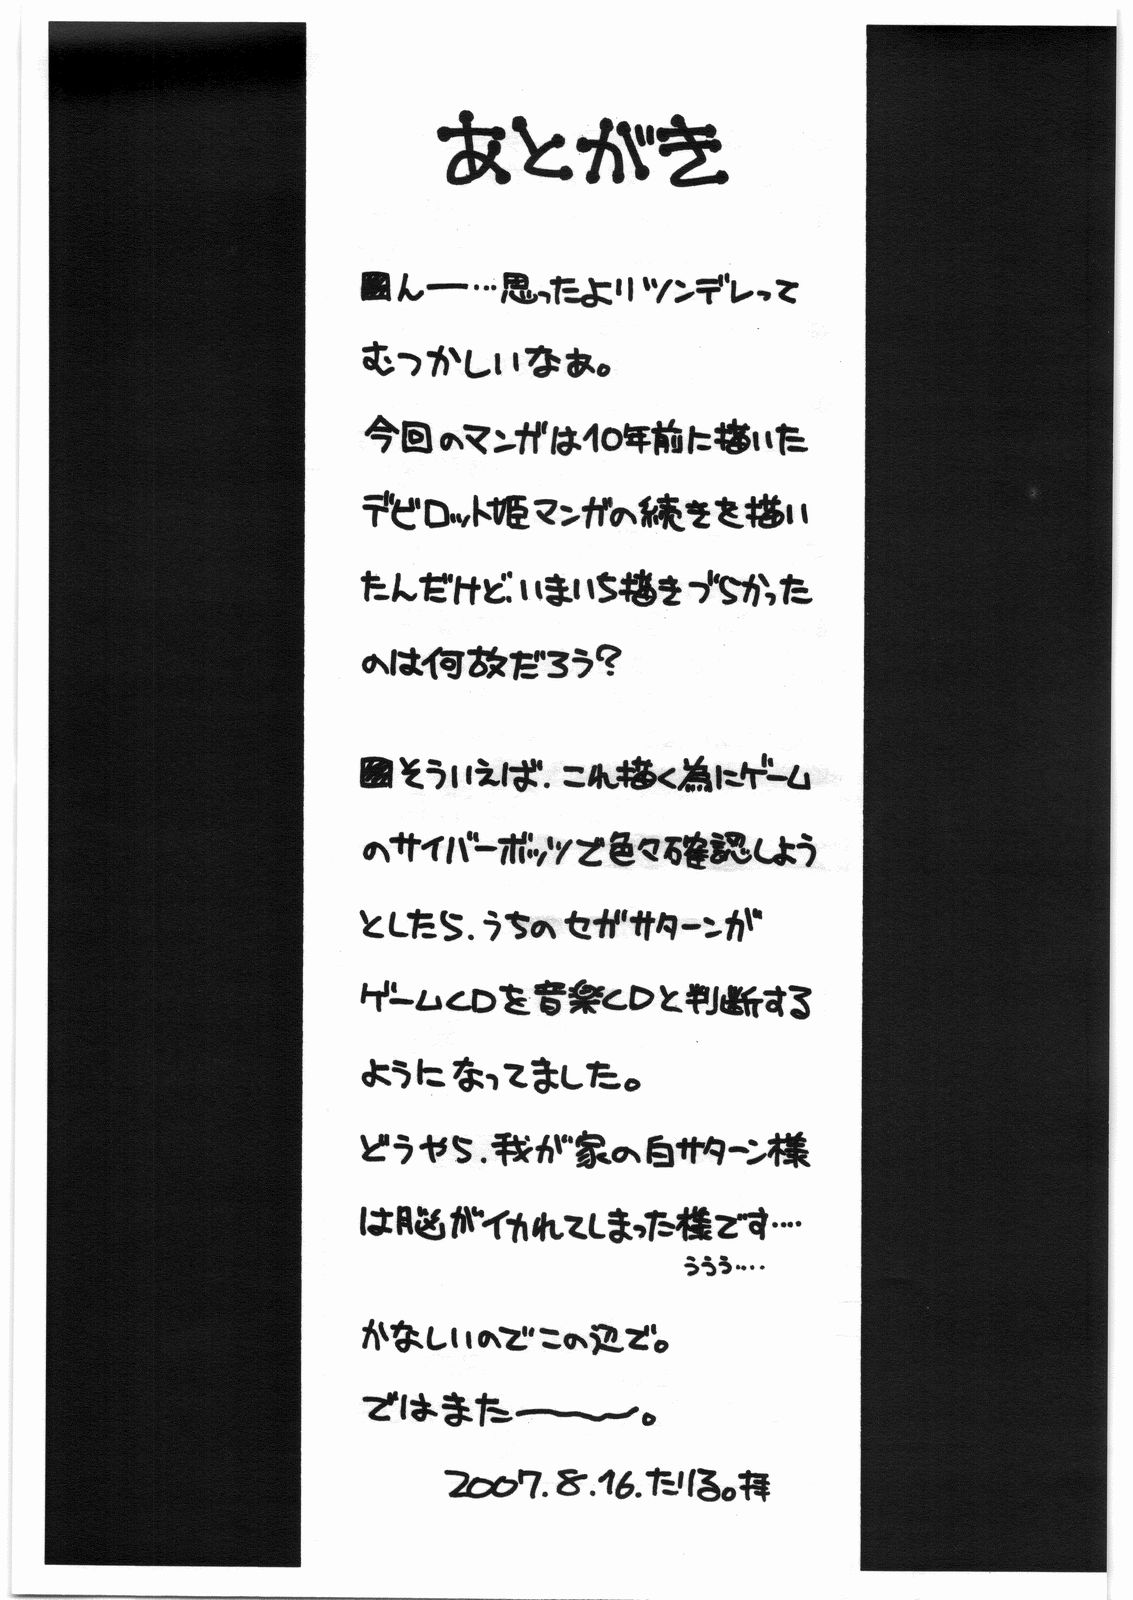 あとがき
■ん一…思ったよりツンデレって
むつかしいなぁ。
今回のマンガは10年前に描いた
デビロット姫マンガの続きを描い
たんだけど、いまいち描きづらかった
のは何故だろう?
■そういえば、これ描く為にゲーム
のサイバーボッツで色々確認しよう
としたら、うちのセガサターンが
ゲームCDを音楽CDと判断する
ようになってました。
どうやら、我が家の白サターン様
は脳がイカれてしまった様です….
ううう….
かなしいのでこの辺で。
ではまた〜。
2007.8.16.たりる。拝